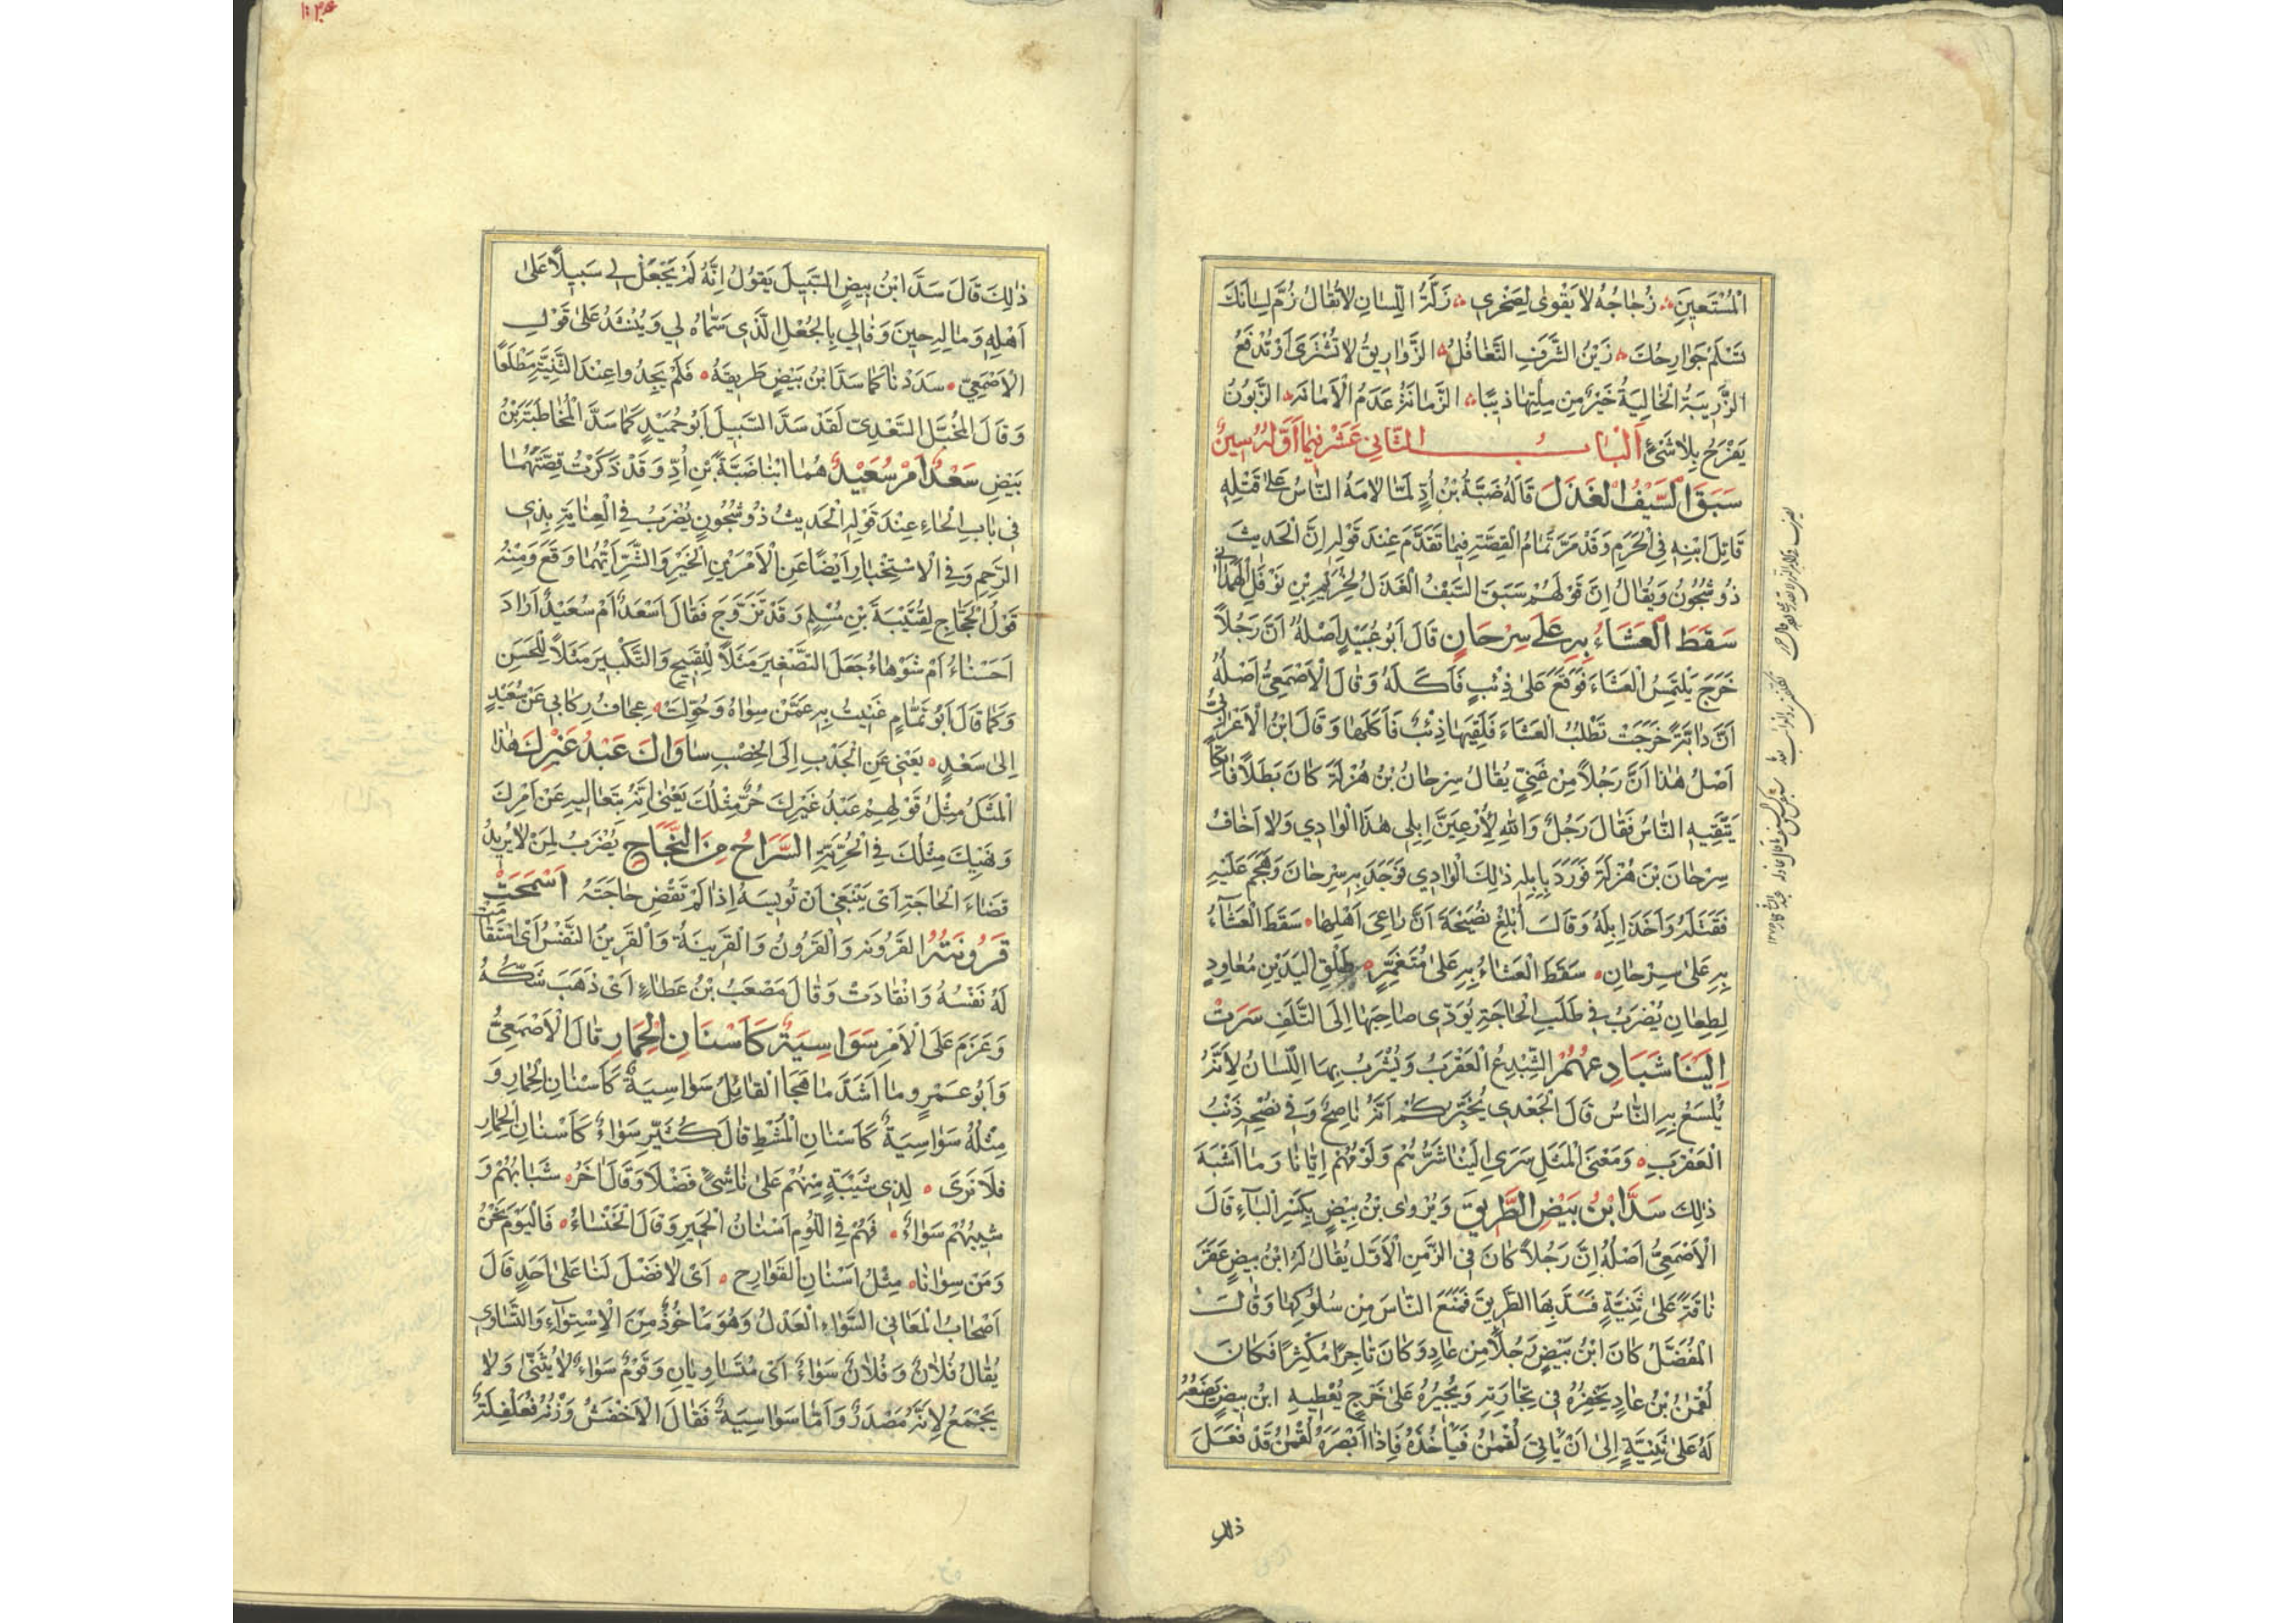 الْمُسْتَعِينَ زُجَاجُهُ لاَ يَقْوٰى لِصَخْرِي زَلَّةُ اللِّسَانِ لاَ تُقَالُ زُمَّ لِسَانَكَ
تَسْلَمْ جَوَارِحُكَ زَيْنُ الشَّرَفِ التَّغَافُلُ الزَّوَارِيقُ لاَ تُشْتَرَى أَوْ تُدْفَعَ
الزَّرِيبَةُ الْخَالِيَةُ خَيْرٌ مِنْ مِلْئِهَا ذِئَابًا الزَّمَانَةُ عَدَمُ الْأَمَانَةِ الزَّبُونُ
يَفْرَحُ بِلاَ شَئٍ الْبَابُ الثَّانِي عَشَرَ فِيمَا أَوَّلُهُ سِينٌ
سَبَقَ السَّيْفُ الْعَذَلَ قَالَهُ ضَبَّةُ بْنُ أُدٍّ لَمَّا لاَمَهُ النَّاسُ عَلٰى قَتْلِهِ
قَاتِلَ ابْنِهِ فِي الْحَرَمِ وَقَدْ مَرَّ تَمَامُ الْقِصَّةِ فِيمَا تَقَدَّمَ عِنْدَ قَوْلِهِ إِنَّ الْحَدِيثَ
ذُو شُجُونٍ وَيُقَالُ إِنَّ قَوْلَهُمْ سَبَقَ السَّيْفُ الْعَذَلَ لِخُزَيْمِ بْنِ نَوْفَلٍ الْهَمْدَانِي
سَقَطَ الْعَشَاءُ بِهِ عَلَى سِرْحَانٍ قَالَ أَبُو عُبَيْدٍ أَصْلُهُ أَنَّ رَجُلاً
خَرَجَ يَلْتَمِسُ الْعَشَاءَ فَوَقَعَ عَلٰى ذِئْبٍ فَأَكَلَهُ وَقَالَ الْأَصْمَعِيُّ أَصْلُهُ
أَنَّ دَابَّةً خَرَجَتْ تَطْلُبُ الْعَشَاءَ فَلَقِيَهَا ذِئْبٌ فَأَكَلَهَا وَقَالَ ابْنُ الْأَعْرَابِيِّ
أَصْلُ هٰذَا أَنَّ رَجُلاً مِنْ غَنِيٍّ يُقَالُ سِرْحَانُ بْنُ هُزْلَةَ كَانَ بَطَلاً فَاتِكًا
يَتَّقِيهِ النَّاسُ فَقَالَ رَجُلٌ وَاللهِ لَأَرْعِيَنَّ إِبِلِي هٰذَا الْوَادِي وَلاَ أَخَافُ
سِرْحَانَ بْنَ هُزْلَةَ فَوَرَدَ بِإِبِلِهِ ذٰلِكَ الْوَادِي فَوَجَدَ بِهِ سِرْحَانَ وَهَجَمَ عَلَيْهِ
فَقَتَلَهُ وَأَخَذَ إِبِلَهُ وَقَالَ أَبْلِغْ نَصِيحَةَ أَنَّ رَاعِيَ أَهْلِهَا سَقَطَ الْعَشَاءُ
بِهِ عَلٰى سِرْحَانِ سَقَطَ الْعَشَاءُ بِهِ عَلٰى مُتَغَمِّرٍ طَلْقِ الْيَدَيْنِ مُعَاوِدٍ
لِطِعَانِ يُضْرَبُ فِي طَلَبِ الْحَاجَةِ يُؤَدِّي صَاحِبَهَا إِلَى التَّلَفِ سَرَتْ
إِلَيْنَا شَبَادِعُهُمْ الشِّبْدِعُ الْعَقْرَبُ وَيُشَبَّهُ بِهَا اللِّسَانُ لِأَنَّهُ
يُلْسَعُ بِهِ النَّاسُ قَالَ الْجَعْدِي يُخَبِّرُكُمْ أَنَّهُ نَاصِحٌ وَفِي نُصْحِهِ ذَنَبُ
الْعَقْرَبِ وَمَعْنَى الْمَثَلِ سَرَى إِلَيْنَا شَرُّهُمْ وَلَوْمُهُمْ إِيَّانَا وَمَا أَشْبَهَ
ذٰلِكَ سَدَّ ابْنُ بَيْضٍ الطَّرِيقَ وَيُرْوٰى بْنُ بِيْضٍ بِكَسْرِ الْبَاءِ قَالَ
الْأَصْمَعِيُّ أَصْلُهُ إِنَّ رَجُلاً كَانَ فِي الزَّمَنِ الْأَوَّلِ يُقَالُ لَهُ ابْنُ بِيضٍ عَقَرَ
نَاقَةً عَلٰى ثَنِيَّةٍ فَسَدَّ بِهَا الطَّرِيقَ فَمَنَعَ النَّاسَ مِنْ سُلُوكِهَا وَقَالَ
الْمُفَضَّلُ كَانَ ابْنُ بَيْضٍ رَجُلاً مِنْ عَادٍ وَكَانَ تَاجِرًا مُكْثِرًا فَكَانَ
لُقْمٰنُ بْنُ عَادٍ يَخْفِرُهُ فِي تِجَارَتِهِ وَيُجِيرُهُ عَلٰى خَرْجٍ يُعْطِيهِ ابْنُ بِيضٍ يَضَعُهُ
لَهُ عَلٰى ثَنِيَّةٍ إِلٰى أَنْ يَأْتِيَ لُقْمٰنُ فَيَأْخُذَهُ فَإِذَا أَبْصَرَهُ لُقْمٰنُ قَدْ فَعَلَ
ذلك
ذٰلِكَ قَالَ سَدَّ ابْنُ بِيضٍ السَّبِيلَ يَقُولُ إِنَّهُ لَمْ يَجْعَلْ لِي سَبِيلاً عَلٰى
أَهْلِهِ وَمَالِهِ حِينَ وَفَالِي بِالْجُعْلِ الَّذِي سَمَّاهُ لِي وَيُنْشَدُ عَلٰى قَوْلِ
الْأَصْمَعِيِّ سَدَدْنَا كَمَا سَدَّ ابْنُ بَيْضٍ طَرِيقَهُ فَلَمْ يَجِدُوا عِنْدَ الثَّنِيَّةِ مَطْلَعًا
وَقَالَ الْمُخَبَّلُ السَّعْدِيّ لَقَدْ سَدَّ السَّبِيلَ أَبُو حُمَيْدٍ كَمَا سَدَّ الْمُخَاطَبَةَ بْنُ
بَيْضِ سَعْدٌ أَمْ سُعَيْدٌ هُمَا ابْنَا ضَبَّةَ بْنِ أُدٍّ وَقَدْ ذَكَرْتُ قِصَّتَهُمَا
فِي بَابِ الْحَاءِ عِنْدَ قَوْلِهِ الْحَدِيثُ ذُو شُجُونٍ يُضْرَبُ فِي الْعِنَايَةِ بِذِي
الرَّحِمِ وَفِي الْاِسْتِخْبَارِ أَيْضًا عَنِ الْأَمْرَيْنِ الْخَيْرِ وَالشَّرِّ أَيُّهُمَا وَقَعَ وَمِنْهُ
قَوْلُ الْحَجَّاجِ لِقُتَيْبَةَ بْنِ مُسْلِمٍ وَقَدْ تَزَوَّجَ فَقَالَ أَسَعْدٌ أَمْ سُعَيْدٌ أَرَادَ
أَحَسْنَاءُ أَمْ شَوْهَاءُ جَعَلَ التَّصْغِيرَ مَثَلاً لِلْقَبِيحِ وَالتَّكْبِيرَ مَثَلاً لِلْحَسَنِ
وَكَمَا قَالَ أَبُو تَمَّامٍ غَنِيتُ بِهِ عَمَّنْ سِوَاهُ وَحُوِّلَتْ عِجَافُ رِكَابِي عَنْ سُعَيْدٍ
إِلٰى سَعْدٍ يَعْنِي عَنِ الْجَدْبِ إِلَى الْخِصْبِ سَاوَاكَ عَبْدُ غَيْرِكَ هٰذَا
الْمَثَلُ مِثْلُ قَوْلِهِمْ عَبْدُ غَيْرِكَ حُرٌّ مِثْلُكَ يَعْنِي أَنَّهُ بِتَعَالِيهِ عَنْ أَمْرِكَ
وَنَهْيِكَ مِثْلُكَ فِي الْحُرِّيَّةِ السَّرَاحُ مِنَ النَّجَاحِ يُضْرَبُ لِمَنْ لاَ يُرِيدُ
قَضَاءَ الْحَاجَةِ أَيْ يَنْبَغِي أَنْ تُويِسَهُ إِذَا لَمْ تَقْضِ حَاجَتَهُ أَسْمَحَتْ
قَرُونَتُهُ الْقَرُونَةُ وَالْقَرُونُ وَالْقَرِينَةُ وَالْقَرِينُ النَّفْسُ أَيْ اسْتَقَامَتْ
لَهُ نَفْسُهُ وَانْقَادَتْ وَقَالَ مَصْعَبُ بْنُ عَطَاءٍ أَيْ ذَهَبَ شَكُّهُ
وَعَزَمَ عَلَى الْأَمْرِ سَوَاسِيَةٌ كَأَسْنَانِ الْحِمَارِ قَالَ الْأَصْمَعِيُّ
وَأَبُو عَمْرٍو مَا أَشَدَّ مَا هَجَا الْقَائِلُ سَوَاسِيَةٌ كَأَسْنَانِ الْحِمَارِ وَ
مِثْلُهُ سَوَاسِيَةٌ كَأَسْنَانِ الْمُشْطِ قَالَ كُثَيِّرٌ سَوَاءٌ كَأَسْنَانِ الْحِمَارِ
فَلاَ تَرَى لِذِي شَيْبَةٍ مِنْهُمْ عَلٰى نَاشِئٍ فَضْلاً وَقَالَ اٰخَرُ شَبَابُهُمْ وَ
شِيبُهُمْ سَوَاءٌ فَهُمْ فِي اللَّوْمِ أَسْنَانُ الْحَمِيرِ وَقَالَ الْخَنْسَاءُ فَالْيَوْمَ نَحْنُ
وَمَنْ سِوَانَا مِثْلُ أَسْنَانِ الْقَوَارِحِ أَيْ لاَ فَضْلَ لَنَا عَلٰى أَحَدٍ قَالَ
أَصْحَابُ الْمَعَانِي السَّوَاءُ الْعَدْلُ وَهُوَ مَأْخُوذٌ مِنَ الْاِسْتِوَاءِ وَالتَّسَاوِي
يُقَالُ فُلاَنٌ وَفُلاَنٌ سَوَاءٌ أَيْ مُتَسَاوِيَانِ وَقَوْمٌ سَوَاءٌ لاَ يُثَنَّى وَلاَ
يَجْمَعُ لِأَنَّهُ مَصْدَرٌ وَأَمَّا سَوَاسِيَةٌ فَقَالَ الْأَخْفَشُ وَزْنُهُ فَعَلْفِلَةٌ